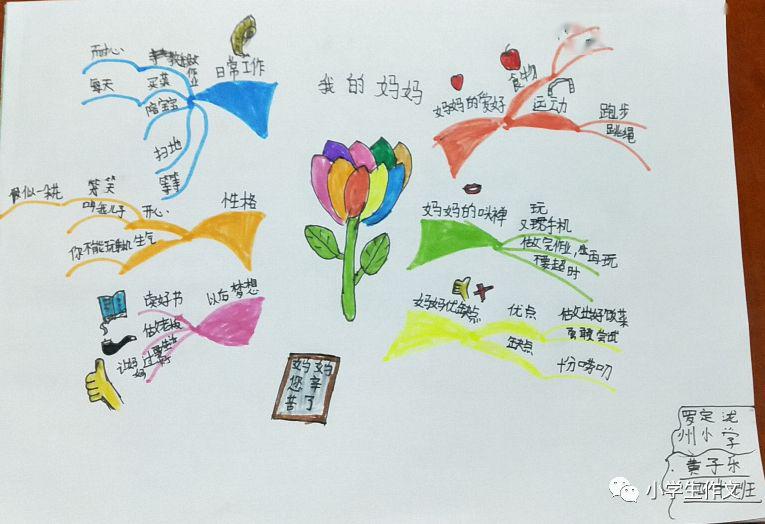 我的妈妈
日常工作
耐心
教做作业
每天
买菜
陪宝宝
扫地
等等
性格
开心
等笑
生气
你不能玩手机
以后梦想
读好书
做老板
妈妈的爱好
食物
运动
跑步
跳绳
妈妈的口头禅
玩
又玩手机
做完作业,再玩
不要超时
妈妈优缺点
优点
做出好饭菜
勇敢尝试
缺点
十分唠叨
妈妈
您辛
苦了
罗定泷
州小学
黄子乐
小学生作文